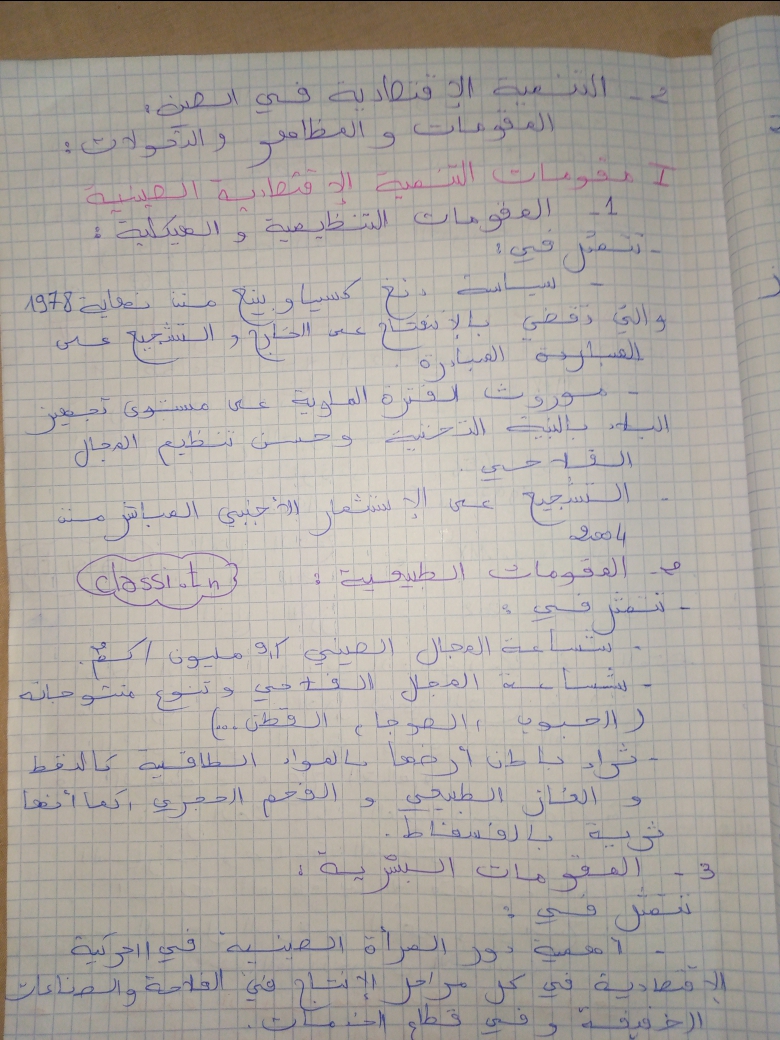 2- التنمية الإقتصادية في الصين:
المقومات و المظاهر و التحولات:
I مقومات التنمية الإقتصادية الصينية
1- المقومات التنظيمية و الهيكلية:
- تتمثل في:
- سياسة دنغ كسياو بينغ منذ نهاية 1978
والتي تقضي بالإنفتاح على الخارج و التشجيع على
المبادرة.
- موروث الفترة الماوية على مستوى تجهيز
البلاد بالبنية التحتية وحسن تنظيم المجال
الفلاحي.
- التشجيع على الإستثمار الأجنبي المباشر منذ
2004
2- المقومات الطبيعية: classi.tn
- تتمثل في:
- شساعة المجال الصيني 9,2 مليون / كم²
- شساعة المجال الفلاحي و تنوع منتوجاته
(الحبوب، الصوجا، القطن...)
- ثراء باطن أرضها بالمواد الطاقية كالنفط
و الغاز الطبيعي و الفحم الحجري، كما أنها
ثرية بالفسفاط.
3- المقومات البشرية:
تتمثل في:
- أهمية دور المرأة الصينية في الحركية
الإقتصادية في كل مراحل الإنتاج في الفلاحة والصناعات
الخفيفة و في قطاع الخدمات.